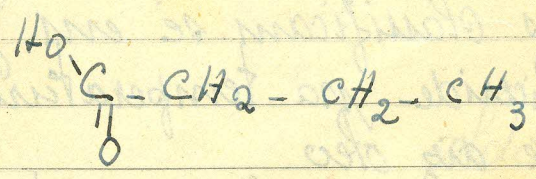 HO
C - CH2 - CH2 - CH3
O